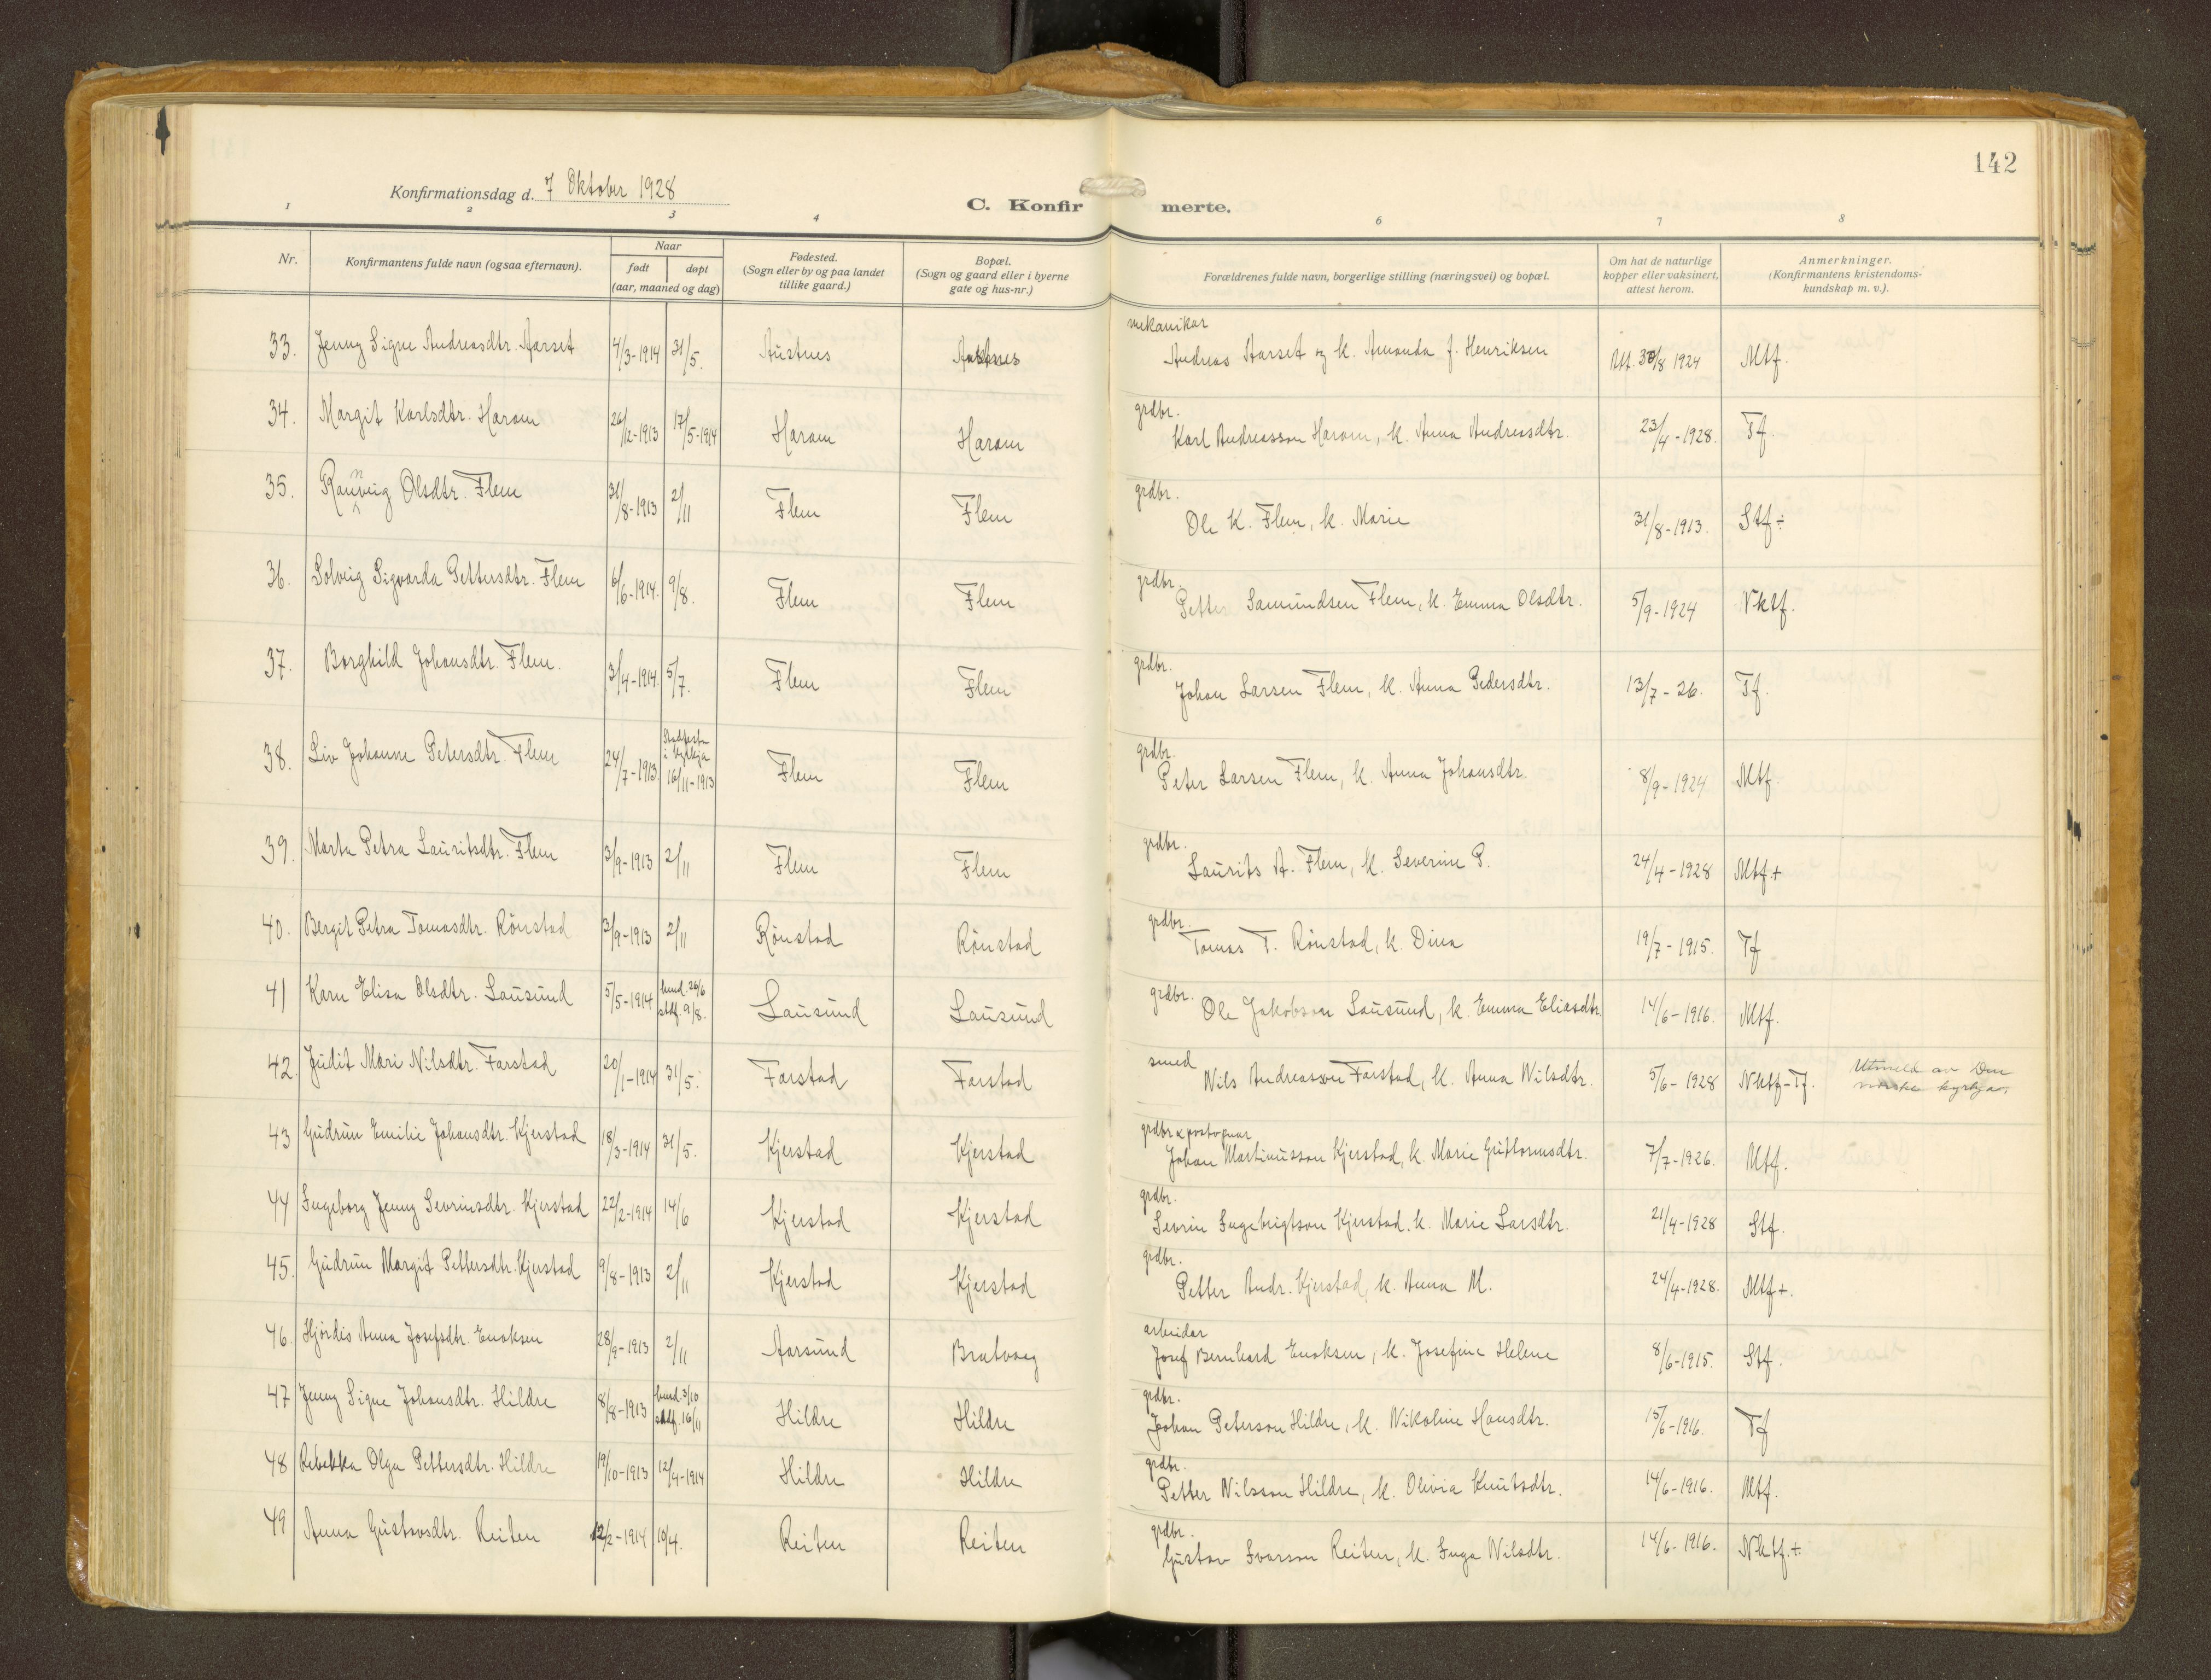 142
Konfirmationsdag d. 7 Oktober 1928
C. Konfirmerte.
1 2 3 4 6 7 8
Nr. Konfirmantens fulde navn (ogsaa efternavn). Naar født døpt (aar, maaned og dag) Fødested. (Sogn eller by og paa landet tillike gaard.) Bopæl. (Sogn og gaard eller i byerne gate og hus-nr.) Forældrenes fulde navn, borgerlige stilling (næringsvei) og bopæl. Om hat de naturlige kopper eller vaksinert, attest herom. Anmerkninger. (Konfirmantens kristendoms-kundskap m. v.).
33. Jenny Signe Andreasdtr. Aarset 4/3-1914 31/5. Austnes Austnes mekanikar Andreas Aarset og k. Amanda f. Henriksen Att. 30/8 1924 Mtf.
34. Margit Karlsdtr. Haram 26/12-1913 17/5-1914 Haram Haram grdbr. Karl Andreasson Haram, k. Anna Andreasdtr. 23/4-1928. Tf.
35. Rannveig Olsdtr. Flem 31/8-1913 2/11 Flem Flem grdbr. Ole K. Flem, k. Marie 31/8-1913. Stf÷
36. Solveig Sigvarda Pettersdtr. Flem 6/6-1914. 9/8. Flem Flem grdbr. Petter Samundsen Flem, k. Emma Olsdtr. 5/9-1924 Nktf.
37. Borghild Johansdtr. Flem. 3/4-1914. 5/7. Flem Flem grdbr. Johan Larsen Flem, k. Anna Pedersdtr. 13/7-26. Tf.
38. Liv Johanne Petersdtr. Flem 24/7-1913. Stadfesta i kyrkja 16/11-1913 Flem Flem grdbr. Peter Larsen Flem, k. Anna Johansdtr. 8/9-1924 Mtf.
39. Marta Petra Lauritsdtr. Flem 3/9-1913 2/11 Flem Flem grdbr. Laurits A. Flem, k. Severine P. 24/4-1928 Mtf.+
40. Bergit Petra Tomasdtr. Rönstad 3/9-1913 2/11 Rönstad Rönstad grdbr. Tomas T. Rönstad, k. Dina 19/7-1915. Tf
41 Karn Elisa Olsdtr. Lausund 5/5-1914 hmd. 26/6 stdf. 9/8. Lausund Lausund grdbr. Ole Jakobson Lausund, k. Emma Eliasdtr. 14/6-1916. Mtf.
42. Judit Mari Nilsdtr. Farstad 20/1-1914 31/5. Farstad Farstad smed Nils Andreasson Farstad, k. Anna Nilsdtr. 5/6-1928 Nktf-Tf. Utmeld av Den norske kyrkja.
43 Gudrun Emilie Johansdtr. Kjerstad 18/3-1914 31/5. Kjerstad Kjerstad grdbr & postopnar Johan Martinusson Kjerstad, k. Marie Guttormsdtr. 7/7-1926. Mtf.
44 Ingeborg Jenny Sevrinsdtr. Kjerstad 22/2-1914 14/6 Kjerstad Kjerstad grdbr. Sevrin Ingebrigtson Kjerstad, k. Marie Larsdtr. 21/4-1928 Stf.
45. Gudrun Margit Pettersdtr. Kjerstad 9/8-1913 2/11 Kjerstad Kjerstad grdbr. Petter Andr. Kjerstad, k. Anna M. 24/4-1928. Mtf+.
46. Hjördis Anna Josefsdtr. Enoksen 28/9-1913 2/11 Aarsund Bratvaag arbeidar Josef Bernhard Enoksen, k. Josefine Helene 8/6-1915. Stf.
47 Jenny Signe Johansdtr. Hildre 8/8-1913 hmd. 3/10 stdf. 16/11 Hildre Hildre grdbr. Johan Peterson Hildre, k. Nikoline Hansdtr. 15/6-1916. Tf
48 Rebekka Olga Pettersdtr. Hildre 19/10-1913 12/4-1914 Hildre Hildre grdbr. Petter Nilsson Hildre, k. Olivia Knutsdtr. 14/6-1916. Mtf.
49 Anna Gustavsdtr. Reiten 12/2-1914 10/4. Reiten Reiten grdbr. Gustav Ivarson Reiten, k. Inga Nilsdtr. 14/6-1916. Nktf.+.